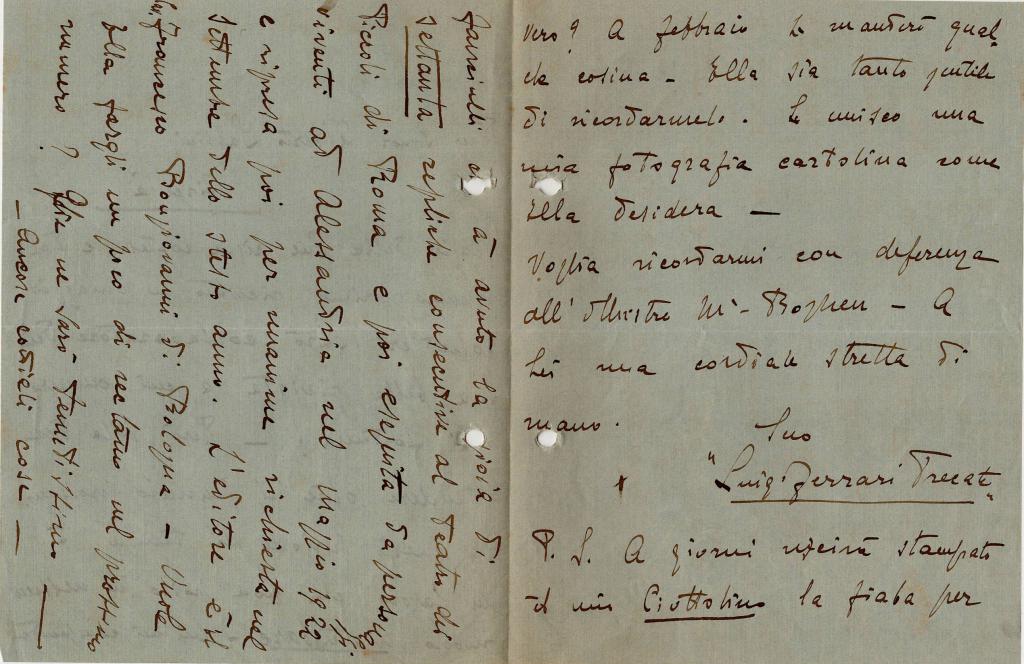 vero? A febbraio Le manderò qual-
che cosina – Ella sia tanto gentile
di ricordarmelo. Le unisco una
mia fotografia cartolina come
Ella desidera —
Voglia ricordarmi con deferenza
all'Illustre M° - Boghen – A
Lei una cordiale stretta di
mano.
Suo
"Luigi Ferrari Trecate"
P. S. A giorni uscirà stampato
il mio Ciottolino la fiaba per
fanciulli che à avuto la gioia di
settanta repliche consecutive al Teatro dei
Piccoli di Roma e poi eseguita da persone
viventi ad Alessandria nel Maggio 1922
e ripresa poi per unanime richiesta nel
Settembre dello stesso anno. L'editore è il
Sig. Francesco Bongiovanni di Bologna – Vuole
Ella fargli un poco di reclame nel prossimo
numero? Gliene sarò tenutissimo —
— Ancora cordiali cose —